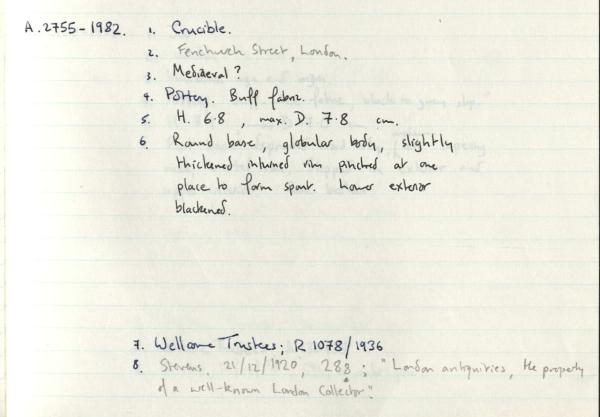 A.2755-1982. 1. Crucible.
2. Fenchurch Street, London.
3. Mediaeval?
4. Pottery. Buff fabric.
5. H. 6.8, max. D. 7.8 cm.
6. Round base, globular body, slightly
thickened inturned rim pinched at one
place to form spout. Lower exterior
blackened.
7. Wellcome Trustees; R 1078/1936
8. Stevens. 21/12/1920, 288; "London antiquities, the property
of a well-known London Collector".